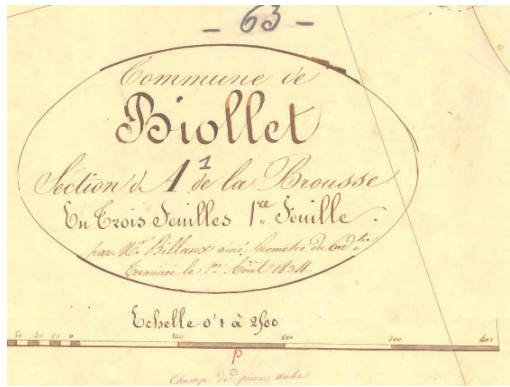 - 63 -
Commune de
Biollet
Section d. A 1 de la Brousse
En Trois Feuilles 1re Feuille.
par Mr. Billaux ainé, Géomètre du Cad.tre
Terminée le 1er Août 1834.
Echelle d'1 à 2500
0
400
P
Champ de pierre aube